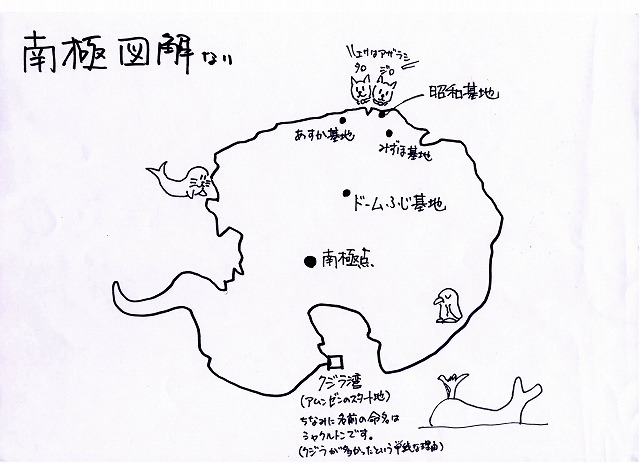 南極図解ない
エサはアザラシ
タロ ジロ
昭和基地
あすか基地
みずほ基地
ドームふじ基地
南極点
クジラ湾
(アムンゼンのスタート地)
ちなみに名前の命名は
シャクルトンです。
(クジラが多かったという単純な理由)